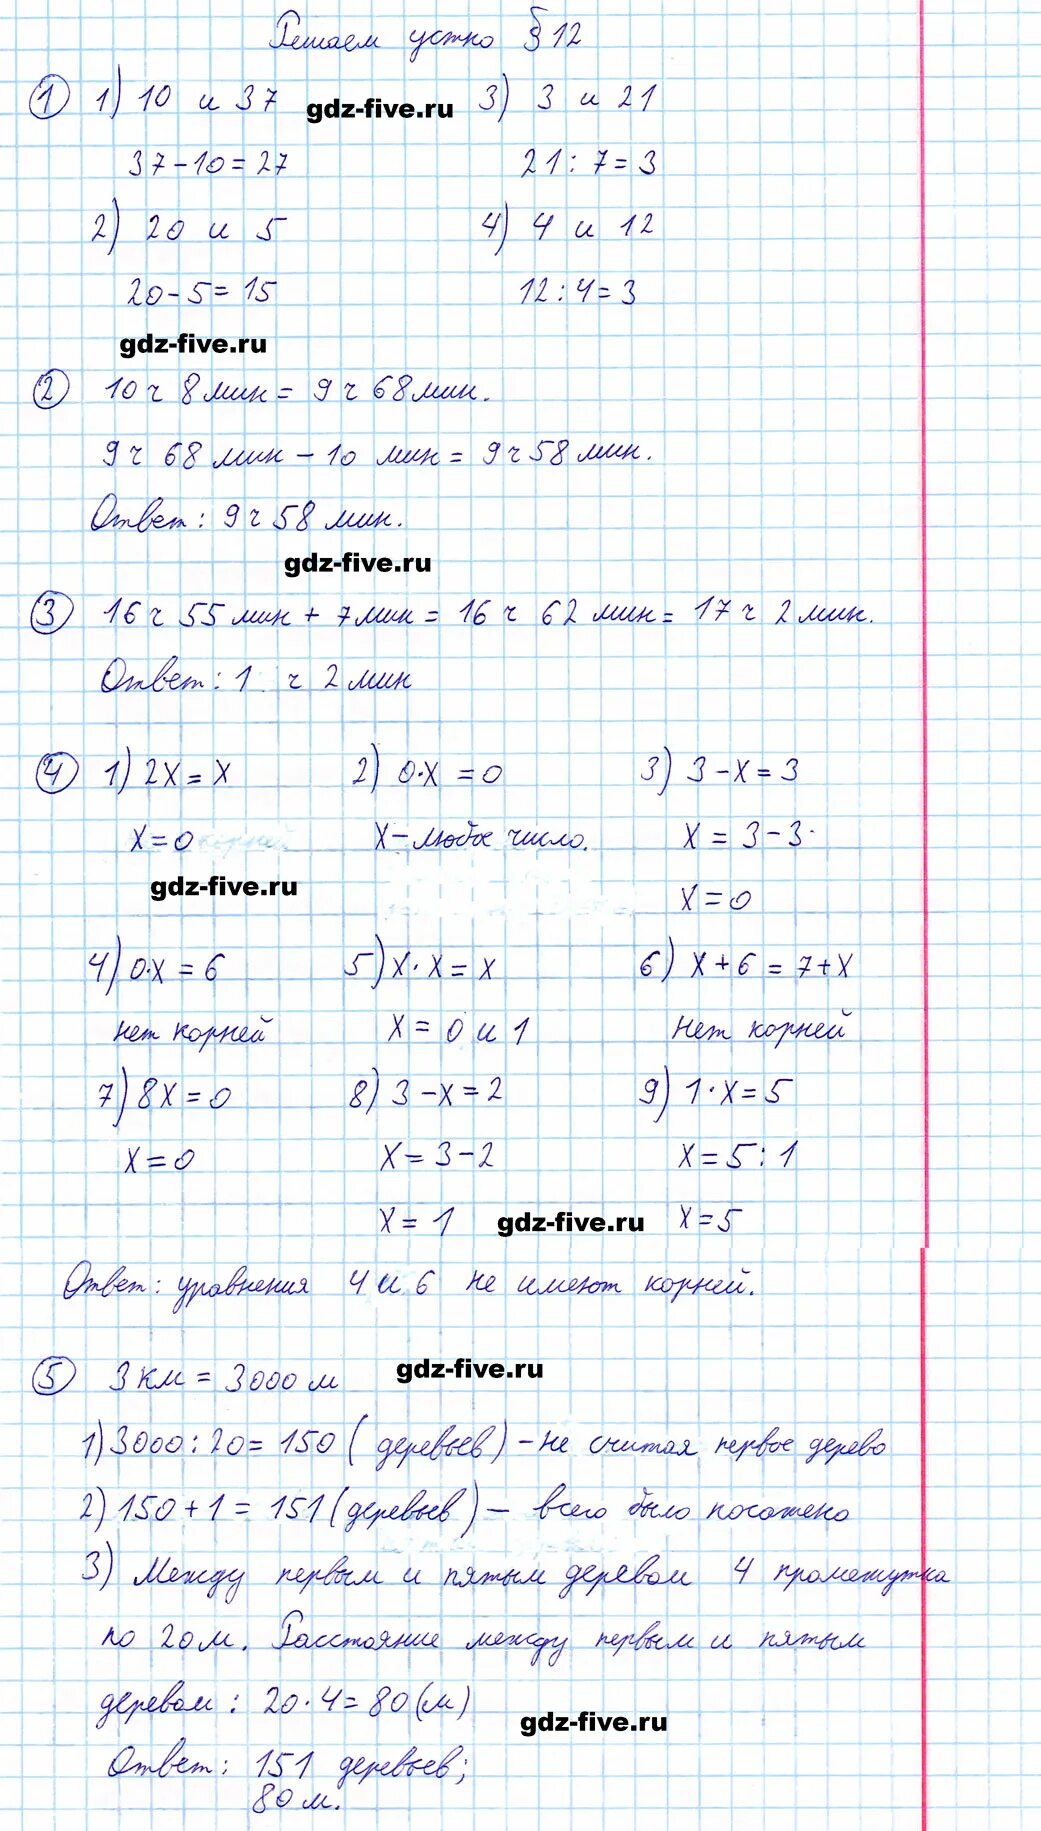 Решаем устно §12
① 1) 10 и 37 gdz-five.ru 3) 3 и 21
37-10=27 21:7=3
2) 20 и 5 4) 4 и 12
20-5=15 12:4=3
gdz-five.ru
② 10 ч 8 мин = 9 ч 68 мин.
9 ч 68 мин - 10 мин = 9 ч 58 мин.
Ответ: 9 ч 58 мин.
gdz-five.ru
③ 16 ч 55 мин + 7 мин = 16 ч 62 мин = 17 ч 2 мин.
Ответ: 1 ч 2 мин
④ 1) 2x = x 2) 0·x = 0 3) 3-x=3
x=0 x-любое число. x = 3-3
gdz-five.ru x=0
4) 0·x = 6 5) x·x = x 6) x+6=7+x
нет корней x = 0 и 1 нет корней
7) 8x=0 8) 3-x=2 9) 1·x=5
x=0 x=3-2 x=5:1
x=1 gdz-five.ru x=5
Ответ: уравнения 4 и 6 не имеют корней.
⑤ 3 км = 3000 м gdz-five.ru
1) 3000:20=150 (деревьев) - не считая первое дерево
2) 150+1=151 (деревьев) - всего было посажено
3) Между первым и пятым деревом 4 промежутка
по 20 м. Расстояние между первым и пятым
деревом: 20·4=80(м)
gdz-five.ru
Ответ: 151 деревьев;
80 м.